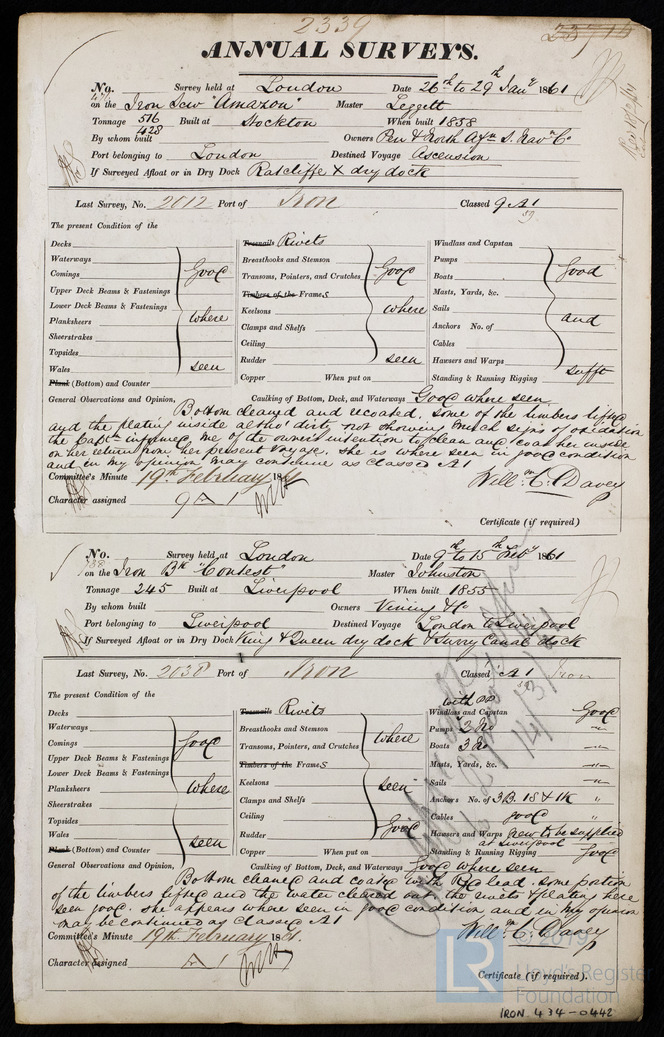 2339
ANNUAL SURVEYS.
No. Survey held at London Date 26th to 29th Jany 1861
on the Iron Scw "Amazon" Master Leggett
Tonnage 516 428 Built at Stockton When built 1858
By whom built Owners Pen & North Afn S. Navn Co
Port belonging to London Destined Voyage Ascension
If Surveyed Afloat or in Dry Dock Ratcliffe X dry dock
Last Survey, No. 2012 Port of Iron Classed 9 A 1
59
The present Condition of the
Decks Treenails Rivets Windlass and Capstan
Waterways Breasthooks and Stemson Pumps
Comings Good Transoms, Pointers, and Crutches Good Boats Good
Upper Deck Beams & Fastenings Timbers of the Frames Masts, Yards, &c.
Lower Deck Beams & Fastenings Keelsons where Sails
Planksheers where Clamps and Shelfs Anchors No. of and
Sheerstrakes Ceiling Cables
Topsides Rudder seen Hawsers and Warps
Wales seen Copper When put on Standing & Running Rigging sufft
Plank (Bottom) and Counter
General Observations and Opinion, Caulking of Bottom, Deck, and Waterways Good where seen
Bottom cleaned and recoated, some of the limbers lifted
and the plating inside altho' dirty not showing much signs of oxidation
the Captn informed me of the owners intention to clean and coat her inside
on her return from her present voyage. She is where seen in good condition
and in my opinion may continue as classed A1
Willm C. Davey
Committee's Minute 19th February 1861
Character assigned 9 A 1
Certificate (if required)
No. Survey held at London Date 9th to 15th Feby 1861
738
on the Iron Bk "Contest" Master Johnston
Tonnage 245 Built at Liverpool When built 1855
By whom built Owners Vining & Co
Port belonging to Liverpool Destined Voyage London to Liverpool
If Surveyed Afloat or in Dry Dock King & Queen dry dock & Surry Canal dock
Last Survey, No. 2038 Port of Iron Classed A 1 Iron
59
The present Condition of the with pp
Decks Treenails Rivets Windlass and Capstan Good
Waterways Breasthooks and Stemson where Pumps 2 No "
Comings Good Transoms, Pointers, and Crutches Boats 3 No "
Upper Deck Beams & Fastenings Timbers of the Frames Masts, Yards, &c. "
Lower Deck Beams & Fastenings Keelsons seen Sails "
Planksheers where Clamps and Shelfs Anchors No. of 3B. 1S & 1K "
Sheerstrakes Ceiling Cables good "
Topsides Rudder Good Hawsers and Warps new to be supplied
at Liverpool
Wales seen Copper When put on Standing & Running Rigging Good
Plank (Bottom) and Counter
General Observations and Opinion, Caulking of Bottom, Deck, and Waterways Good where seen
Bottom cleaned and coated with Red lead. some portion
of the limbers lifted and the water cleared out the rivets & plating here
seen good. she appears where seen in good condition and in my opinion
may be continued as classed A1
Willm C. Davey
Committee's Minute 19th February 1861.
Character assigned A 1
Certificate (if required).
LR
© 2019
Lloyd's Register
Foundation
IRON 434-0442